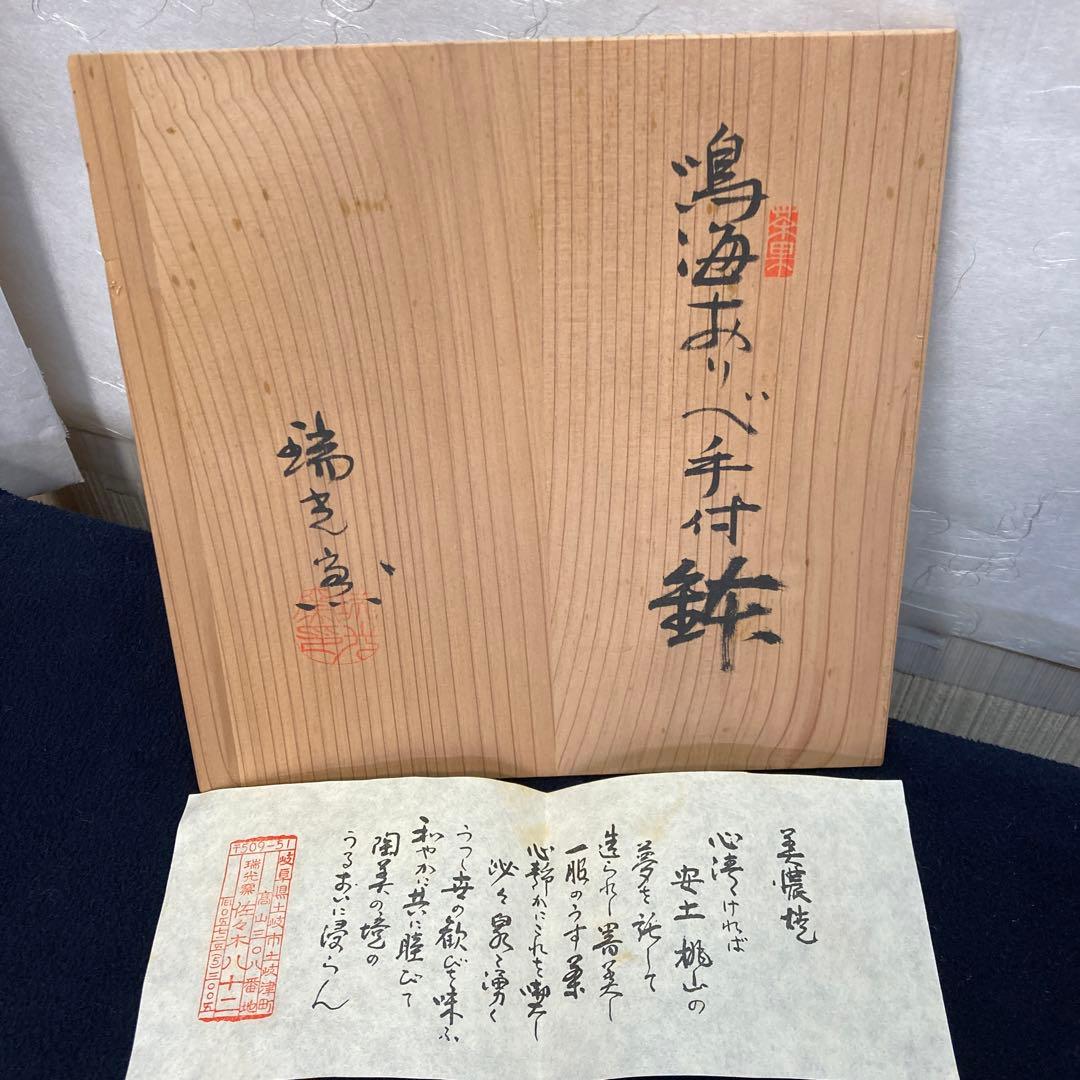 鳴海おりべ手付鉢
茶果
瑞光窯
美濃焼
心清くければ
安土桃山の
夢を託して
造られし器美し
一服のうす茶
心静かにこれを喫し
沁々泉と湧く
うつゝ世の歓びを味ふ
和やかに共に睦びて
陶美の境の
うるおいに浸らん
〒509-51
岐阜県土岐市土岐津町
高山三〇八番地
瑞光窯 佐々木八十二